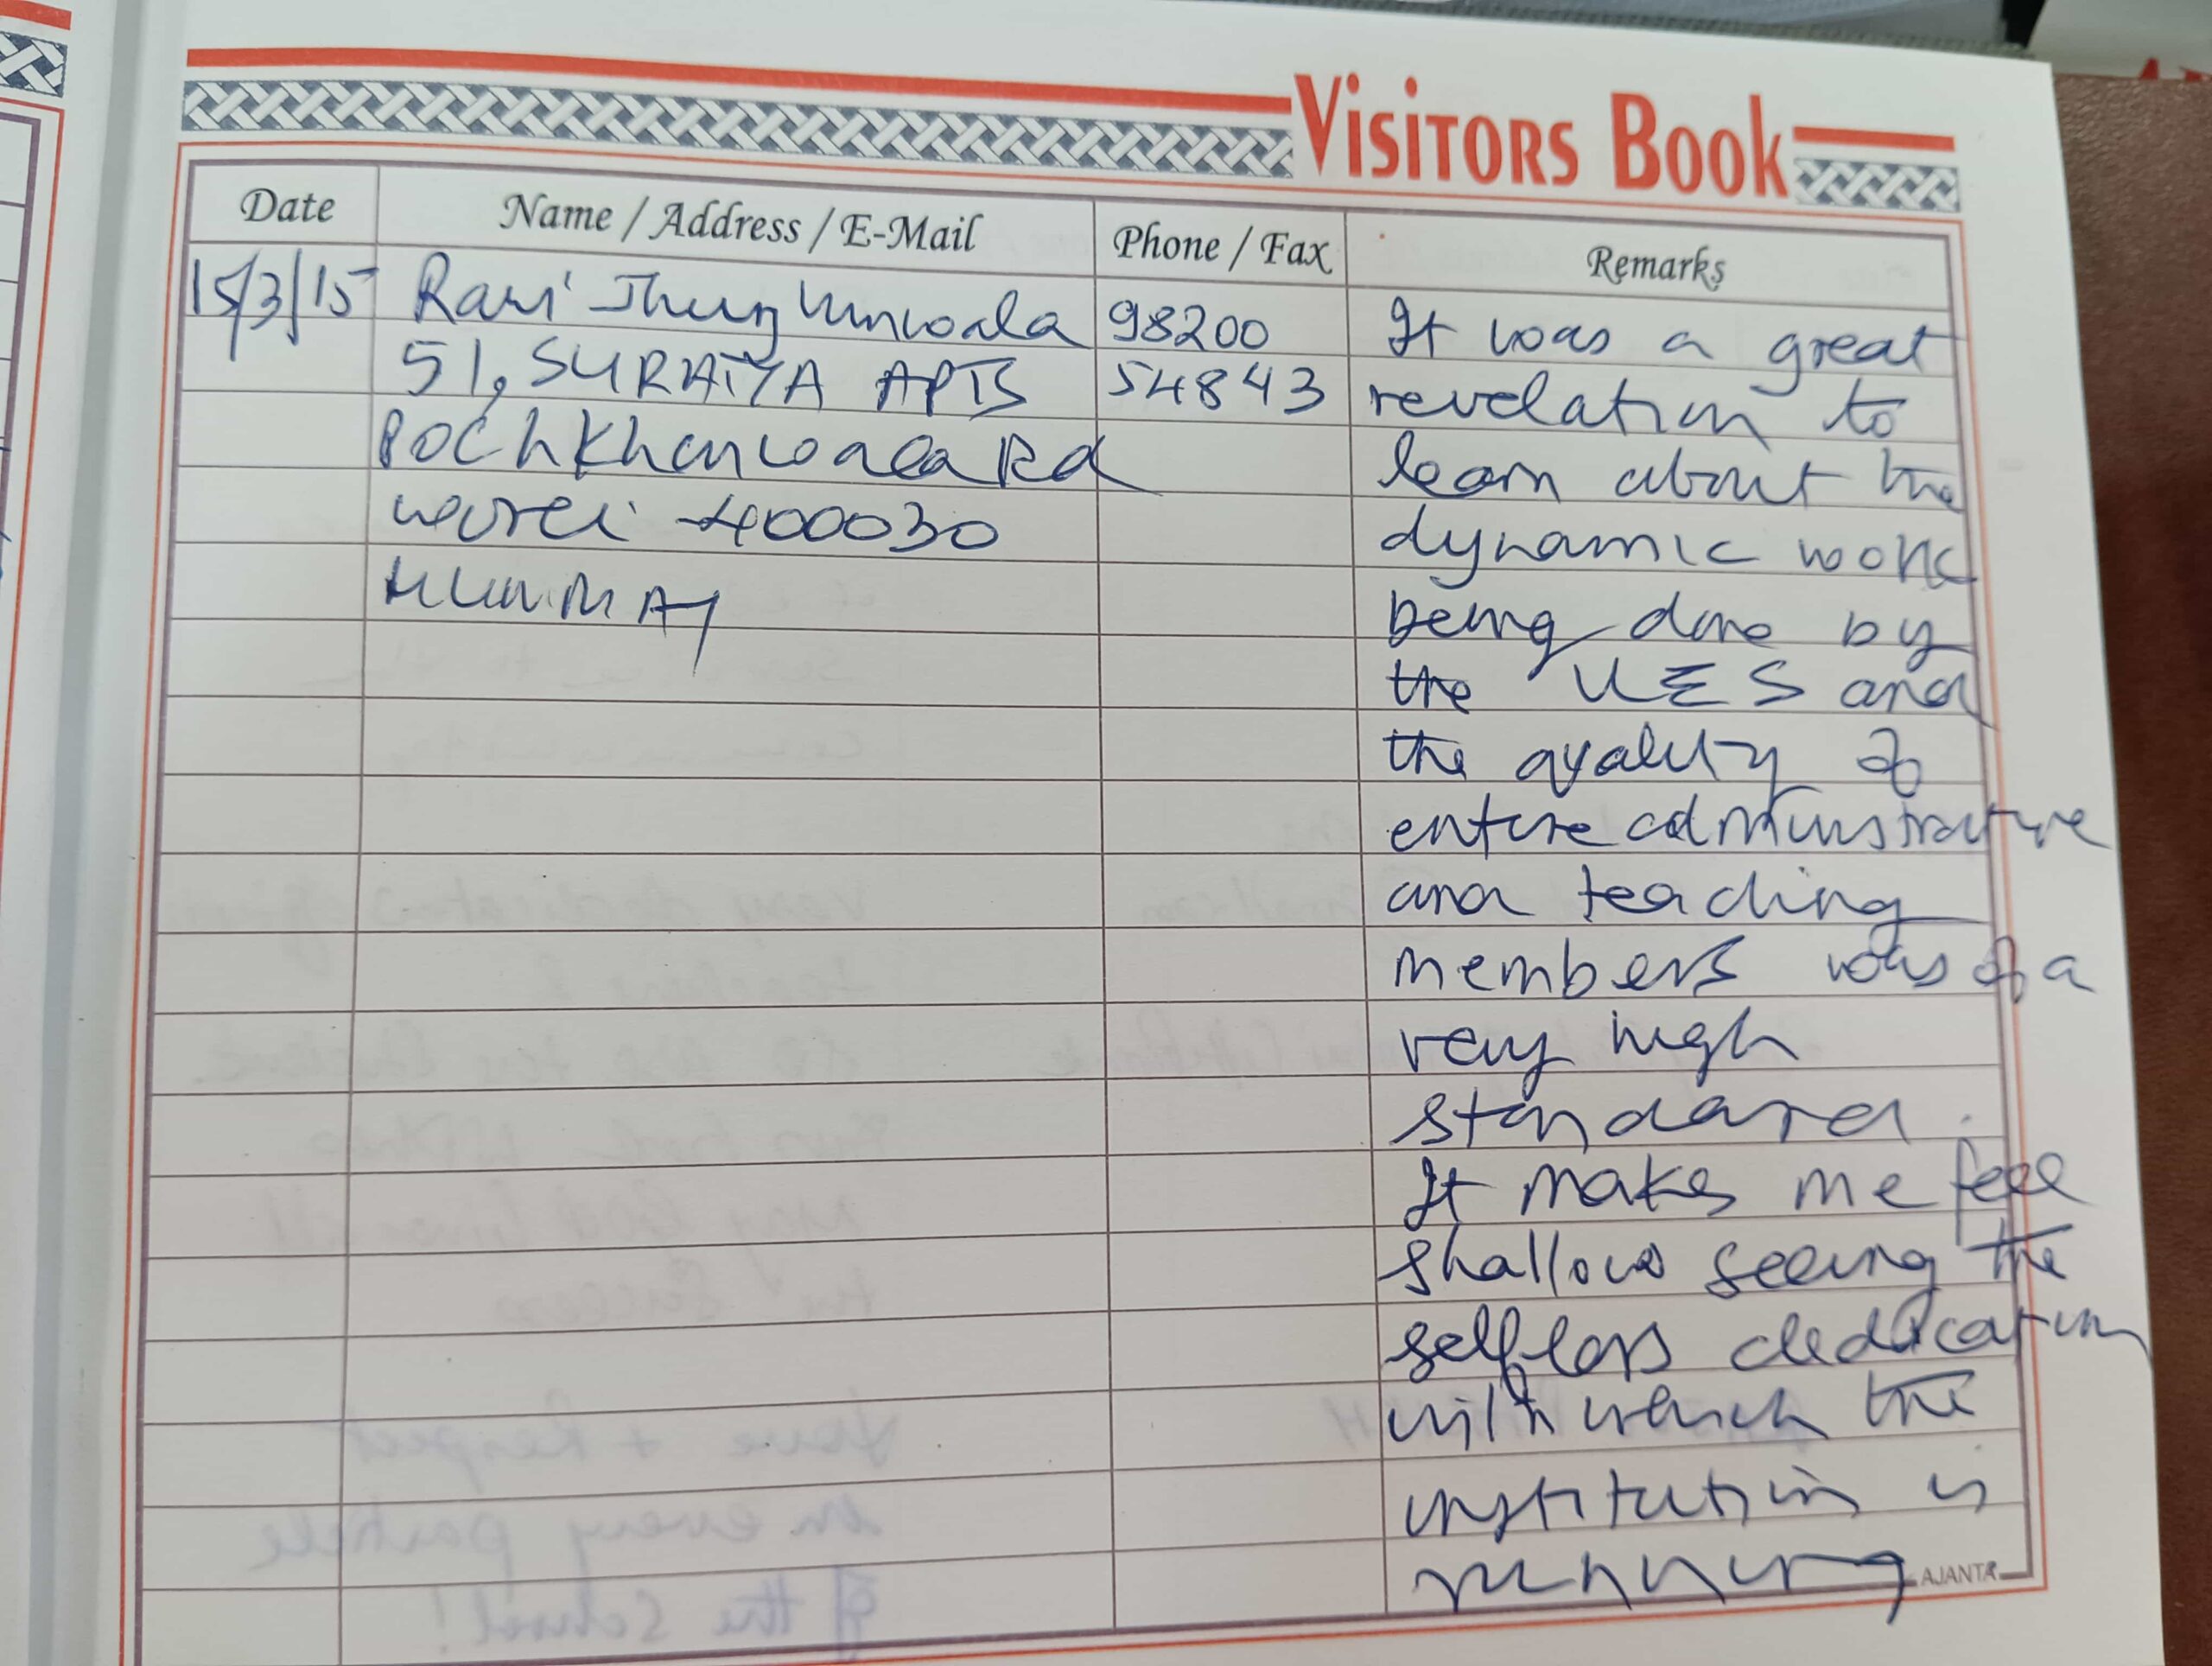 VISITORS BOOK
Date Name / Address / E-Mail Phone / Fax Remarks
15/3/15 Ravi Jhunjhunwala 98200 It was a great
51, SURAIYA APTS 54843 revelation to
POChKhanwala Rd learn about the
worli - 400030 dynamic work
MUMBAY being done by
the UES and
the quality of
entire administrative
and teaching
members was of a
very high
standard.
It makes me feel
shallow seeing the
selfless dedication
with which the
institution is
running
AJANTA